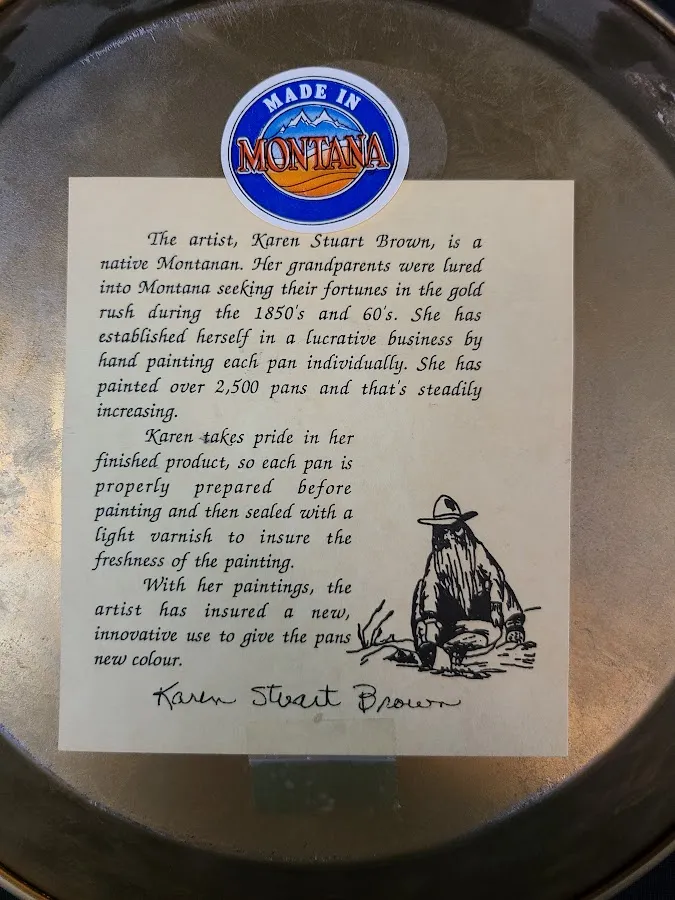 MADE IN
MONTANA
The artist, Karen Stuart Brown, is a
native Montanan. Her grandparents were lured
into Montana seeking their fortunes in the gold
rush during the 1850's and 60's. She has
established herself in a lucrative business by
hand painting each pan individually. She has
painted over 2,500 pans and that's steadily
increasing.
Karen takes pride in her
finished product, so each pan is
properly prepared before
painting and then sealed with a
light varnish to insure the
freshness of the painting.
With her paintings, the
artist has insured a new,
innovative use to give the pans
new colour.
Karen Stuart Brown